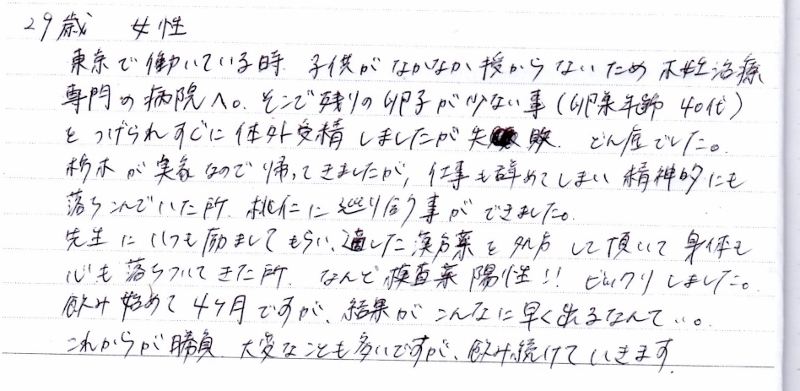 29歳 女性
東京で働いている時 子供がなかなか授からないため 不妊治療
専門の病院へ。そこで残りの卵子が少ない事(卵巣年齢 40代)
をつげられすぐに体外受精しましたが失敗 どん底でした。
栃木が実家なので帰ってきましたが、仕事も辞めてしまい精神的にも
落ちこんでいた所、桃仁に巡り合う事ができました。
先生にいつも励ましてもらい、適した漢方薬を処方して頂いて身体も
心も落ちついてきた所、なんと検査薬陽性!! ビックリしました。
飲み始めて4ヶ月ですが、結果がこんなに早く出るなんて…。
これからが勝負 大変なことも多いですが、飲み続けていきます